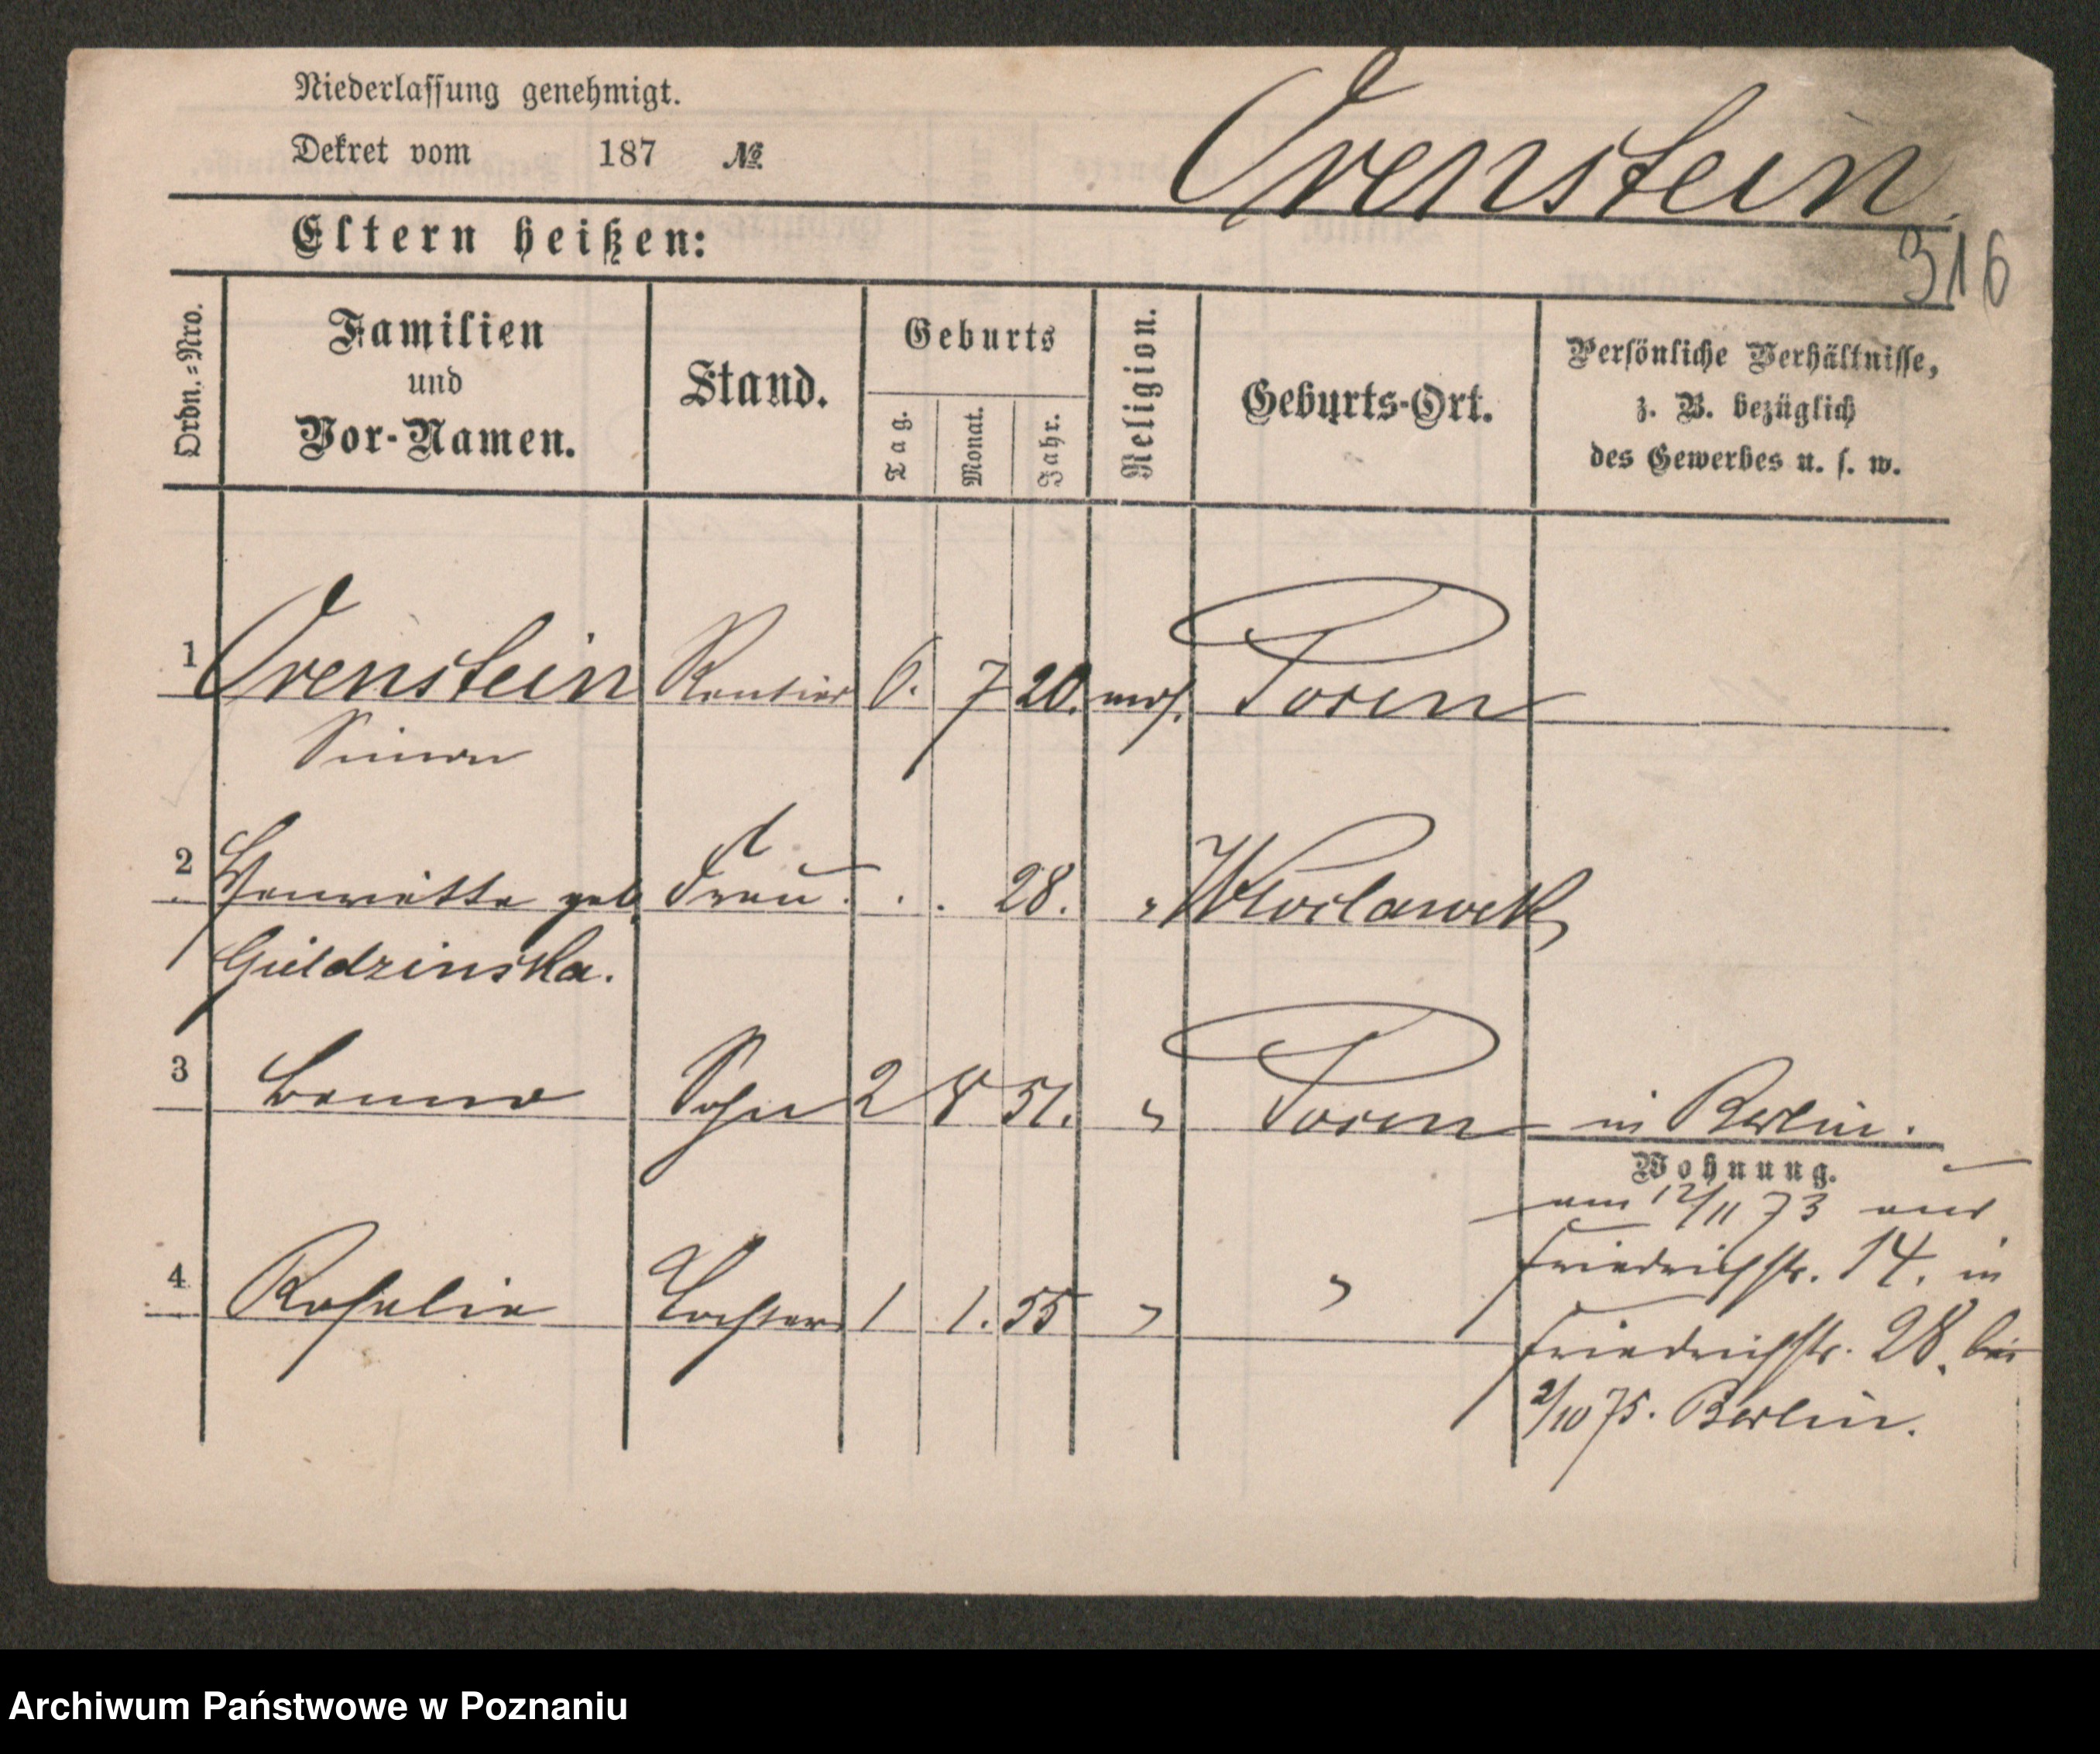 Niederlassung genehmigt.
Dekret vom 187 №
Orenstein.
316
Eltern heißen:
Ordn.-Nro.
Familien
und
Vor-Namen.
Stand.
Geburts
Tag.
Monat.
Jahr.
Religion.
Geburts-Ort.
Persönliche Verhältnisse,
z. B. bezüglich
des Gewerbes u. s. w.
1 Orenstein Rentier 6. 7 20. mos. Posen
Simon
2 Henriette geb. Frau . . 28. " Wloclawek
Gieldzinska.
3 Benno Sohn 2 8 51. " Posen in Berlin.
Wohnung.
am 12/11 73 aus
Friedrichstr. 14. in
4 Rosalie Tochter 1 1. 55 " "
Friedrichstr. 28. bis
2/10 75. Berlin.
Archiwum Państwowe w Poznaniu